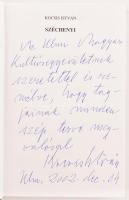 KOCSIS ISTVÁN
SZÉCHENYI
Az Ulmi Magyar
Kultúregyesületnek
szeretettel és re-
mélve, hogy tag-
jainak minden
szép terve meg-
valósul
Kocsis István
Ulm, 2002. dec. 04